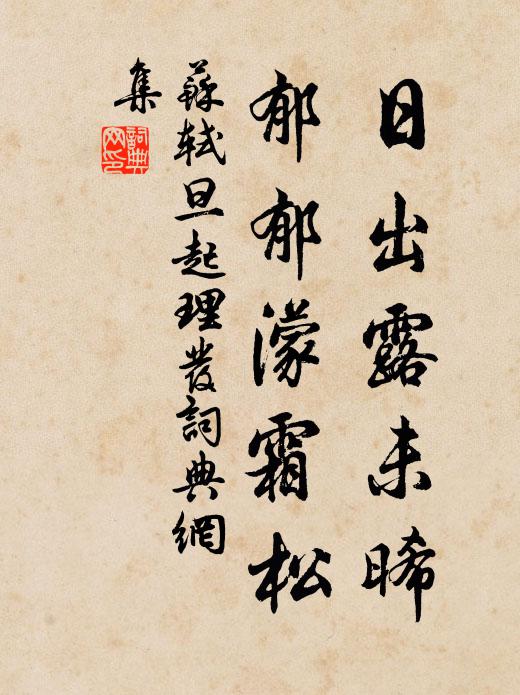 日出露未晞
郁郁濛霜松
蘇軾旦起理發詞典網
集
詞典
网印